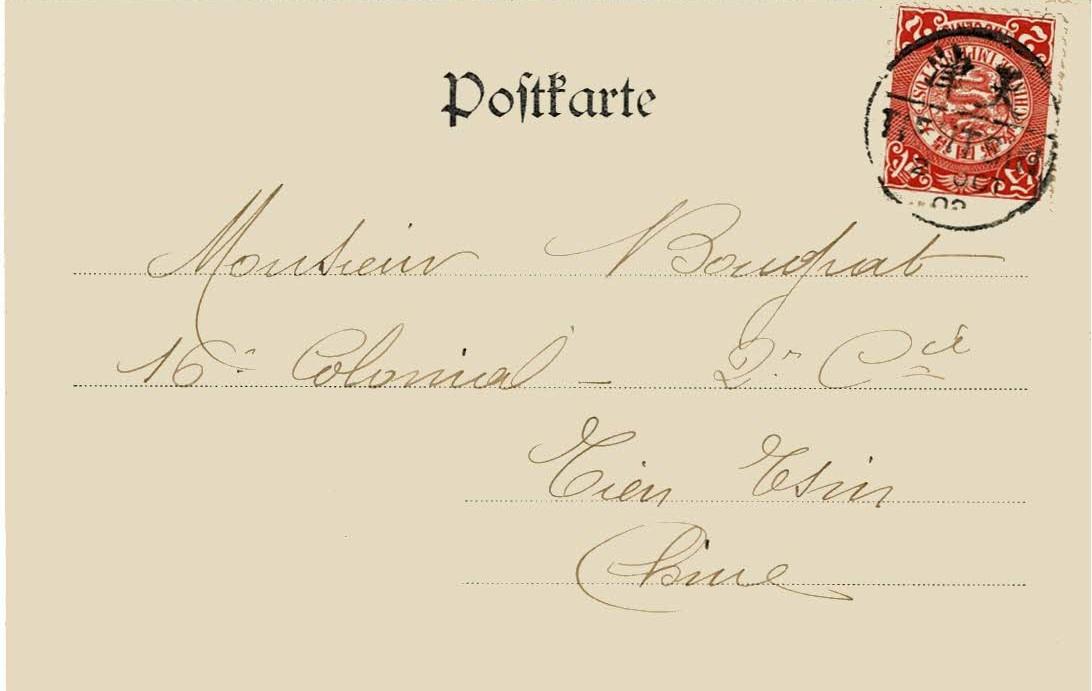 Postkarte
Monsieur Bougrat
16e Colonial - 2e Cie
Tien Tsin
Chine
2 OCT
02